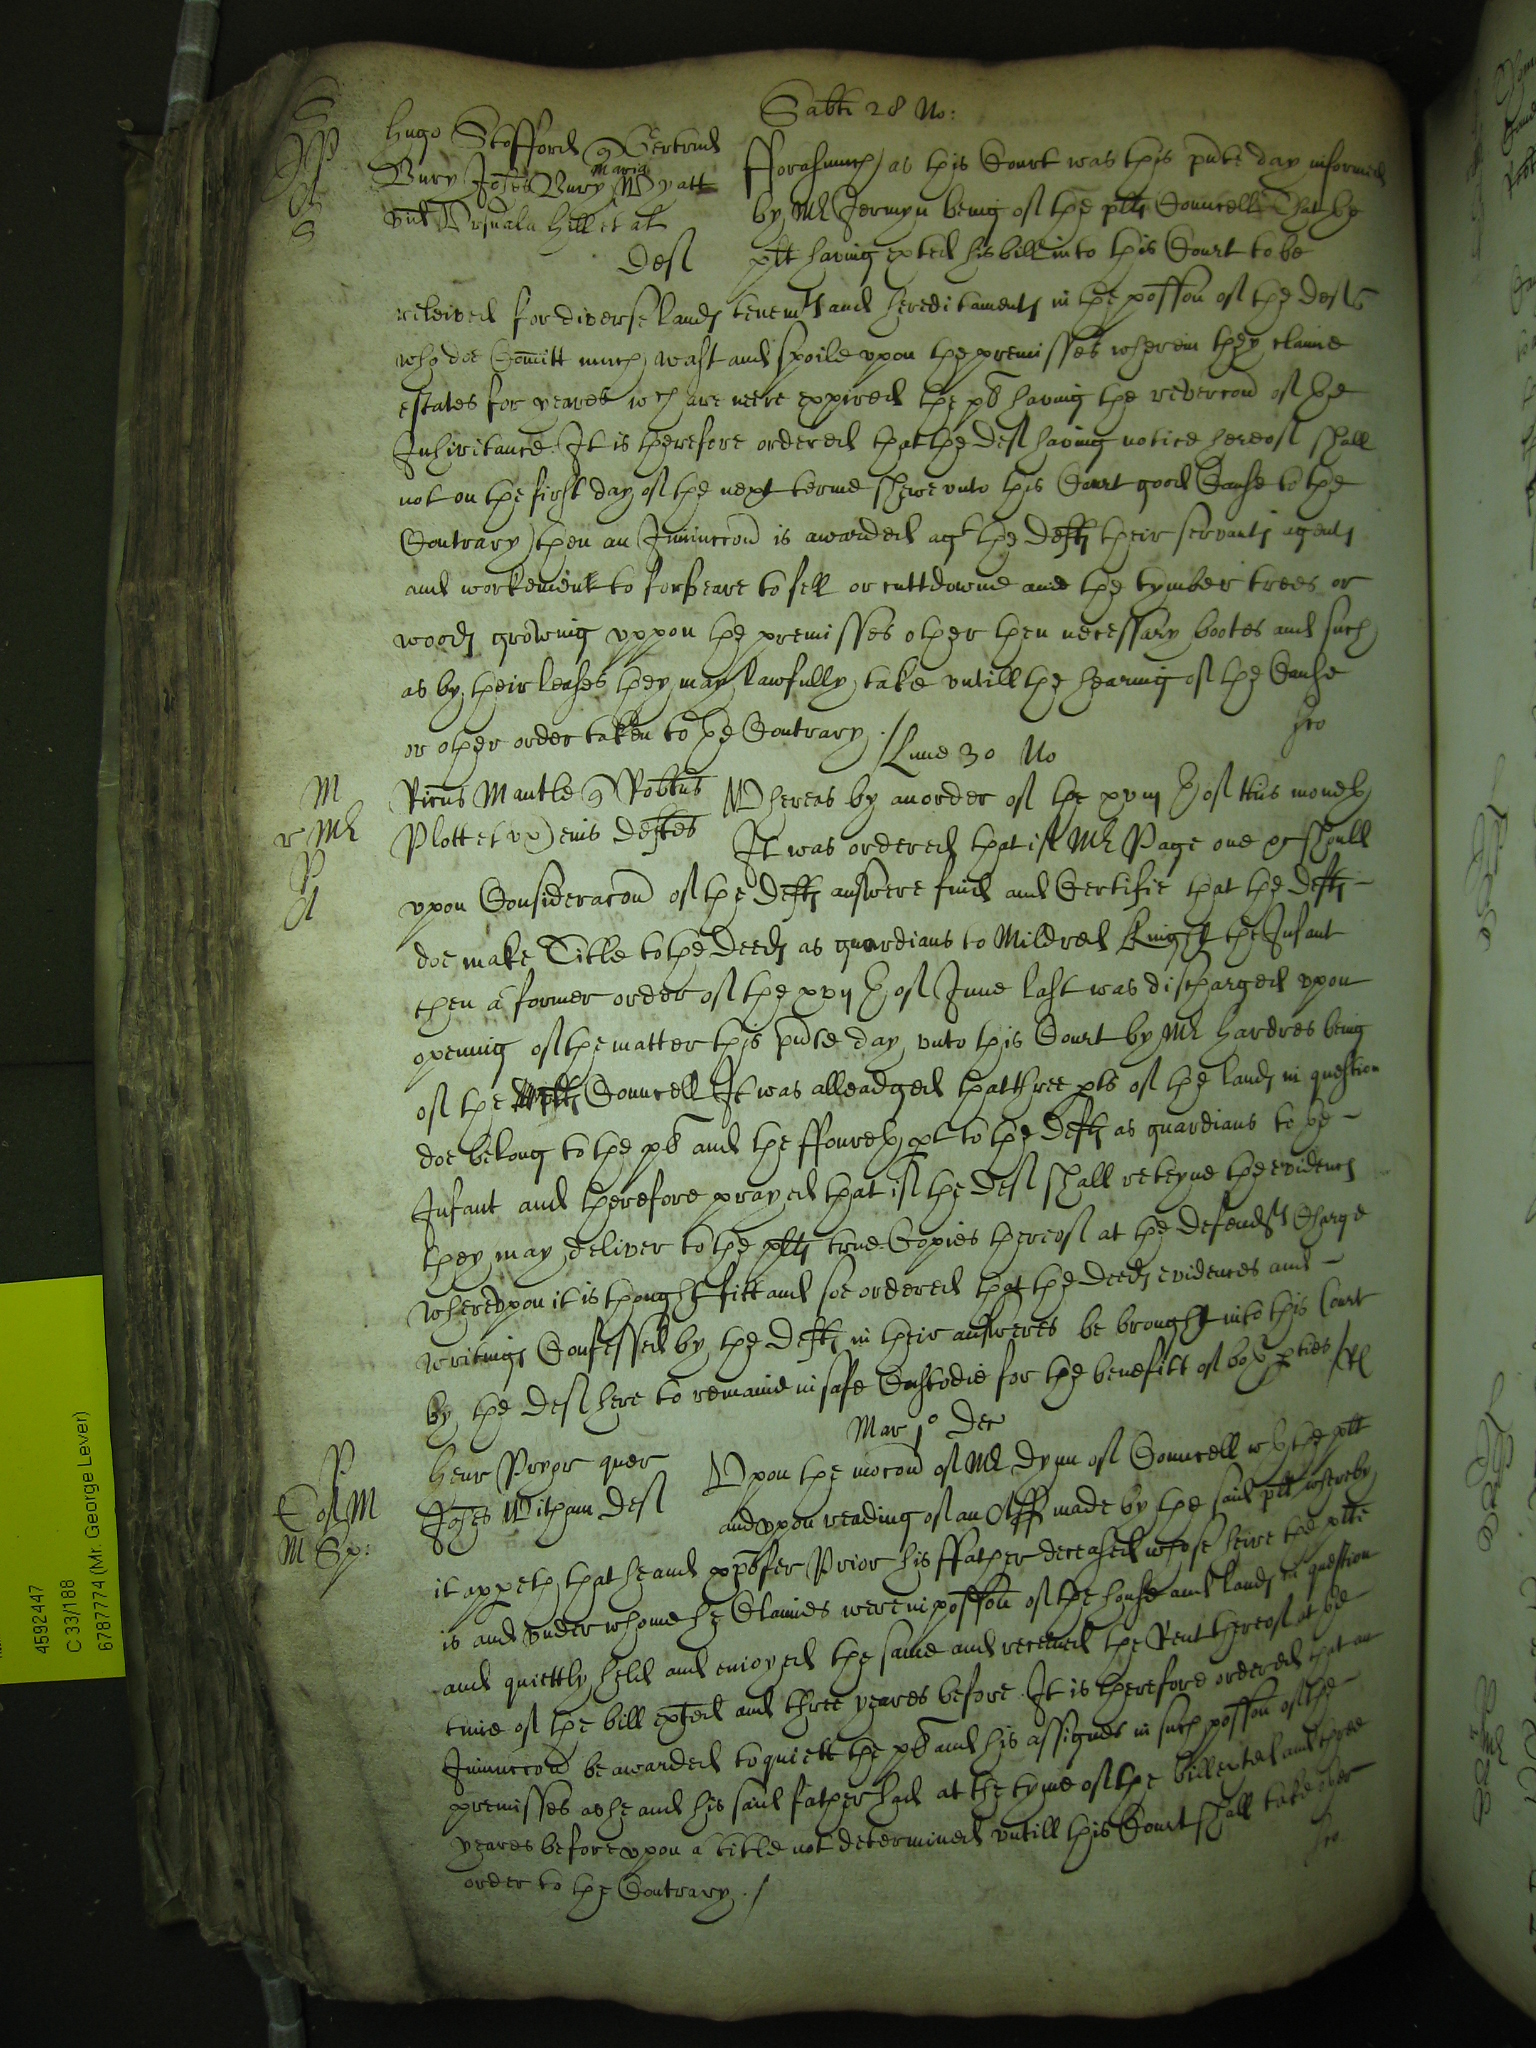 Sabti 28 No:
Hugo Stofford q Gertrud
Bury Johes Bury Maria Wyatt
vid Ursuala Hill et al
Def
fforasmuch as this Court was this pnte day informed
by Mr Jermyn being of the plts Councell That the
plt having exted his bill into this Court to be
releived for diverse lands tenemts and hereditaments in the possion of the defts
who doe Comitt much wast and spoile upon the premisses wherein they claime
estates for yeares wch are neere expired the pl having the revercon of the
Inheritance. It is therefore ordered that the def having notice hereof shall
not on the first day of the next terme shewe unto this Court good Cause to the
Contrary then an Iniunccon is awarded agt the defts their servants agents
and workemen to forbeare to fell or cutt downe anie the tymber trees or
woods growing uppon the premisses other then necessary bootes and such
as by their leases they may lawfully take untill the hearing of the Cause
or other order taken to the Contrary /
Lune 30 No
M
r Mr
P
Ricus Mantle q Robtus
Plott et ux eius deftes
Whereas by an order of the xviij th of this moneth
It was ordered that if Mr Page one &c should
upon Consideracon of the defts answere find and Certifie that the defts
doe make Title to the deeds as guardians to Mildred Knight the Infant
then a former order of the xvij th of June last was discharged upon
opening of the matter this pnte day unto this Court by Mr Hardres being
of the plts Councell It was alleadged that three pts of the lands in question
doe belong to the pl and the ffourth pt to the defts as guardians to the
Infant and therefore prayed that if the def shall reteyne the evidences
they may deliver to the plts true Copies thereof at the defendts Charge
whereupon it is thought fitt and soe ordered that the deeds evidences and
writings Confessed by the defts in their answeres be brought into this Court
by the def here to remaine in safe Custodie for the benefitt of both pties /
Mar 1o Dec
P
Henr Pryor quer
Johes Witham def
Upon the mocon of Mr Dynn of Councell wth the plt
and upon reading of an Aff made by the said plt whereby
it appeth that he and xpofer Prior his ffather deceased whose heire the plte
is and under whome he Claimes were in possion of the house and lands in question
and quiettly held and enioyed the same and received the Rent thereof at the
time of the bill exted and three yeares before. It is therefore ordered that an
Iniunccon be awarded to quiett the pl and his assignes in such possion of the
premisses as he and his said father had at the tyme of the bill exted and three
yeares before upon a title not determined untill this Court shall take other
order to the Contrary ./
4592447
C 33/188
6787774 (Mr. George Lever)